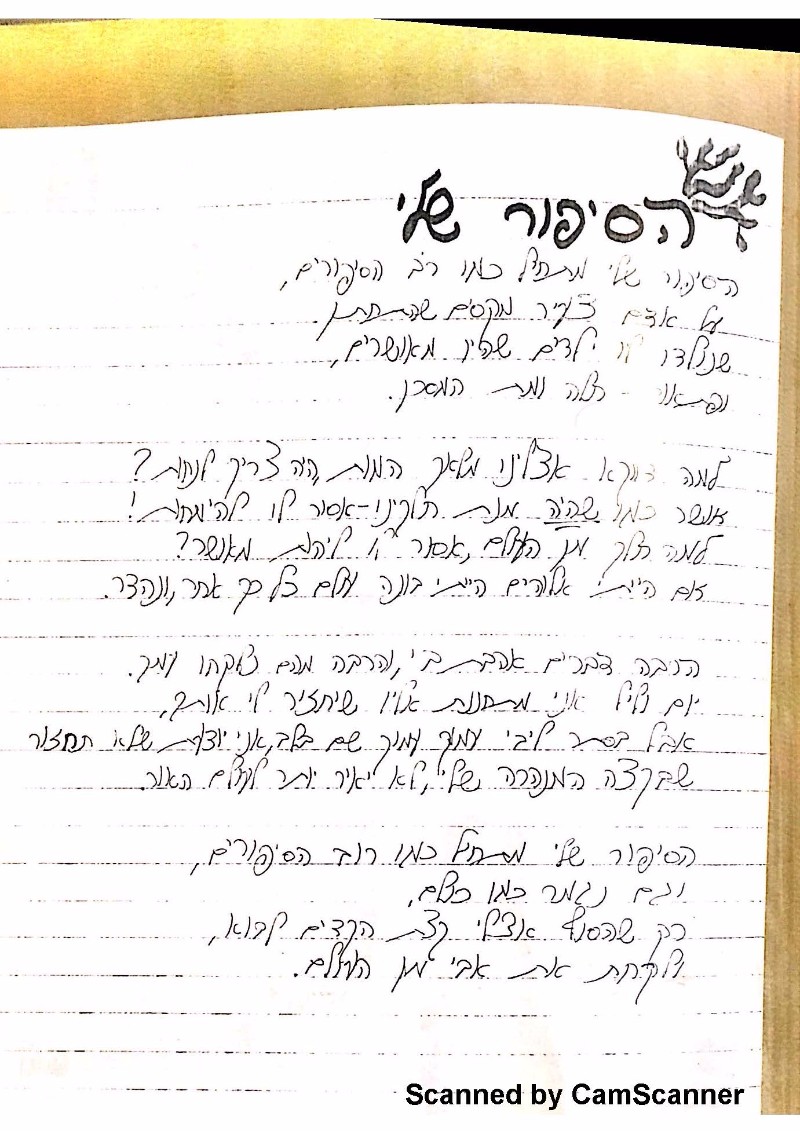 הסיפור שלי
הסיפור שלי מתחיל כמו רב הסיפורים,
על אדם צעיר מקסים שהתחתן.
שנולדו לו ילדים שהיו מאושרים,
ופתאו - חלה ומת המסכן.
למה דווקא אצלינו מלאך המות, היה צריך לנחות?
אושר כמו שהיה מנת חלקינו-אסור לו להימחות!
למה הלך מן העולם, אסור לו ליהות מאושר?
אם הייתי אלוהים הייתי בונה עולם כל כך אחר, ונהדר.
הרבה דברים אהבת בי, והרבה מהם נלקחו עמך.
יום וליל אני מתחננת אליו שיחזיר לי אותך,
אבל בסתר ליבי עמוק עמוק שם בלב, אני יודעת שלא תחזור
שבקצה המנהרה שלי, לא יאיר יותר לעולם האור.
הסיפור שלי מתחיל כמו רוב הסיפורים,
וגם נגמר כמו כולם,
רק שהסוף אצלי קצת הקדים לבוא,
ולקחת את אבי מן העולם.
Scanned by CamScanner